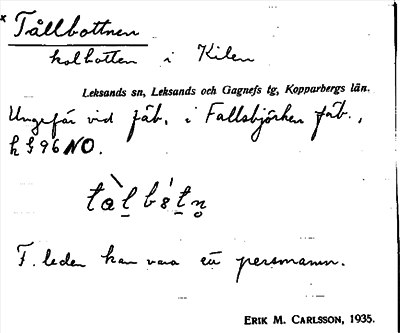 * Tållbottnen
kolbotten i Kilen
Leksands sn, Leksands och Gagnefs tg, Kopparbergs län.
Ungefär vid fäb. i Fallsbjörken fäb.,
96 NO.
F. leden kan vara ett personnamn.
ERIK M. CARLSSON, 1935.